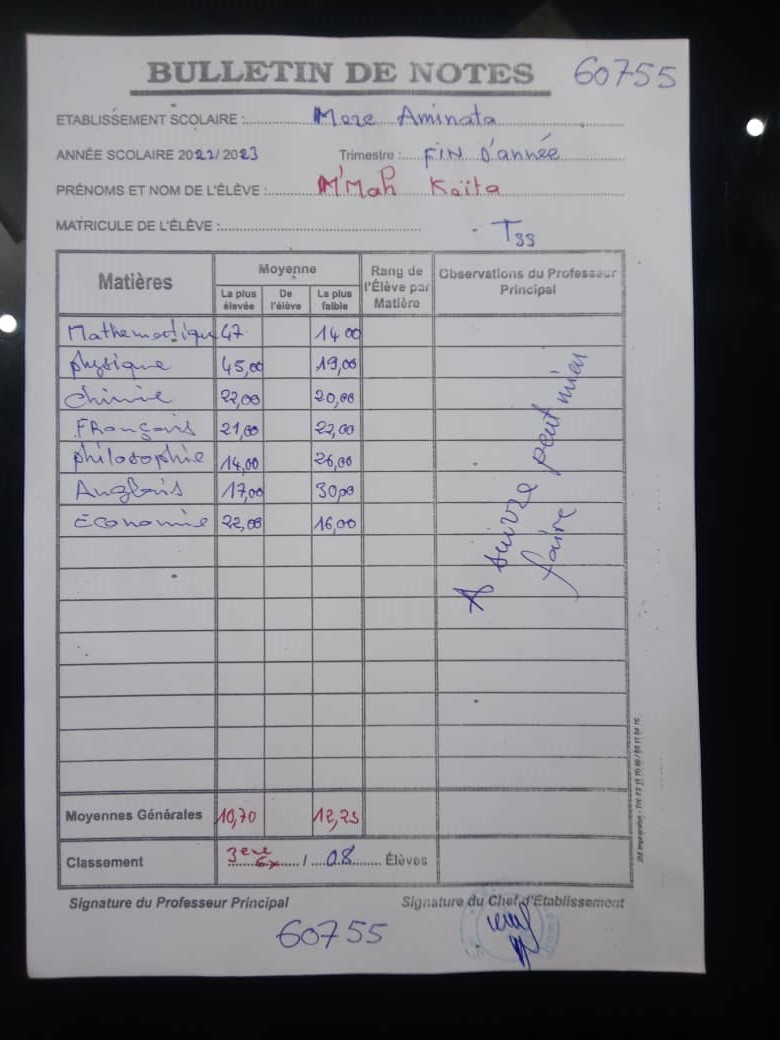 BULLETIN DE NOTES 60755
ETABLISSEMENT SCOLAIRE : Mere Aminata
ANNÉE SCOLAIRE 2022/2023 Trimestre : FIN D'année
PRÉNOMS ET NOM DE L'ÉLÈVE : M'Mah Keïta
MATRICULE DE L'ÉLÈVE :
TSS
Matières Moyenne Rang de l'Élève par Matière Observations du Professeur Principal
La plus élevée De l'élève La plus faible
Mathematique 47 14 00
physique 45,00 19,00
chimie 22,00 20,00
FRançais 21,00 22,00
philosophie 14,00 26,00
Anglais 17,00 30,00
Economie 22,00 16,00
A suivre peut mieu
faire
Moyennes Générales 10,70 12,25
Classement 3eme ex / 08 Élèves
Signature du Professeur Principal Signature du Chef d'Établissement
60755